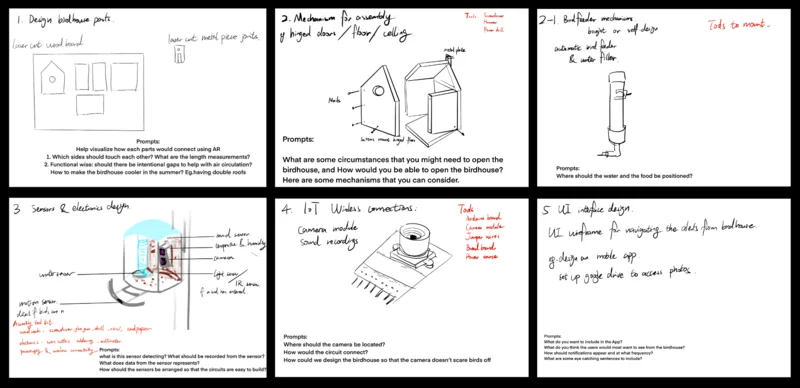 1. Design birdhouse parts.
laser cut wood board
laser cut metal piece joints
Prompts:
Help visualize how each parts would connect using AR
1. Which sides should touch each other? What are the length measurements?
2. Functional wise: should there be intentional gaps to help with air circulation?
How to make the birdhouse cooler in the summer? Eg.having double roofs
2. Mechanism for assembly
hinged doors / floor / ceiling
Tools:
Screwdriver
Hammer
Power drill
metal plate
Prompts:
What are some circumstances that you might need to open the
birdhouse, and How would you be able to open the birdhouse?
Here are some mechanisms that you can consider.
2-1. Birdfeeder mechanisms
bought or self-design
automatic bird feeder
& water filler.
Tools to mount.
Prompts:
Where should the water and the food be positioned?
3 Sensors & electronics design
sound sensor
temperature & humidity
camera
light sensor /
IR sensor
water sensor
motion sensor
Assembly tool kit:
Prompts:
what is this sensor detecting? What should be recorded from the sensor?
What does data from the sensor represents?
How should the sensors be arranged so that the circuits are easy to build?
4. IoT Wireless connections.
Camera module
sound recordings
Tools:
Arduino board
Camera module
Jumper wires
Bread board
Power source
Prompts:
Where should the camera be located?
How would the circuit connect?
How could we design the birdhouse so that the camera doesn't scare birds off
5 UI interface design.
UI wireframe for navigating the data from birdhouse.
eg. design an mobile app
set up google drive to access photos
Prompts:
What do you want to include in the App?
What do you think the users would most want to see from the birdhouse?
How should notifications appear and at what frequency?
What are some eye catching sentences to include?